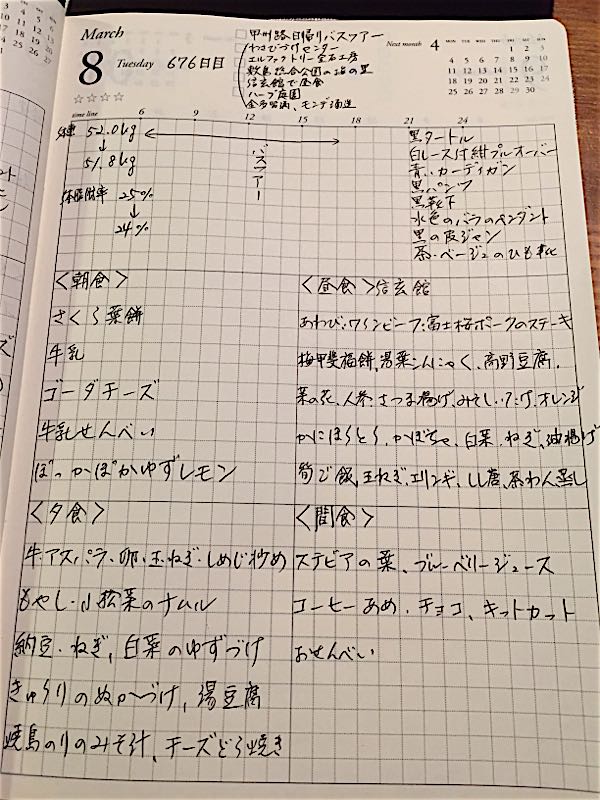 March
8 Tuesday 676日目
甲州路日帰りバスツアー
わさびづけセンター
エルファクトリー宝石工房
敷島総合公園の梅の里
信玄館で昼食
ハーブ庭園
金多留満、モンデ酒造
Next month 4
MON TUE WED THU FRI SAT SUN
1 2 3
4 5 6 7 8 9 10
11 12 13 14 15 16 17
18 19 20 21 22 23 24
25 26 27 28 29 30
time line 6 9 12 15 18 21 24
体重 52.0kg
↓
51.8kg
体脂肪率 25%
↓
24%
バスツアー
黒タートル
白レース付紺プルオーバー
青・カーディガン
黒パンツ
黒靴下
水色のバラのペンダント
黒の皮ジャン
茶・ベージュのひも靴
<朝食>
さくら葉餅
牛乳
ゴーダチーズ
牛乳せんべい
ぽっかぽかゆずレモン
<昼食>信玄館
あわび・ワインビーフ・富士桜ポークのステーキ
梅甲斐福餅、湯葉こんにゃく、高野豆腐、
菜の花、人参、さつま揚げ、みそしいたけ、オレンジ
かにほうとう、かぼちゃ、白菜、ねぎ、油揚げ
筍ご飯、玉ねぎ、エリンギ、しし唐、茶わん蒸し
<夕食>
牛・アスパラ・卵・玉ねぎ・しめじ炒め
もやし・小松菜のナムル
納豆・ねぎ、白菜のゆずづけ
きゅうりのぬかづけ、湯豆腐
焼鳥のりのみそ汁、チーズどら焼き
<間食>
ステビアの葉、ブルーベリージュース
コーヒーあめ、チョコ、キットカット
おせんべい